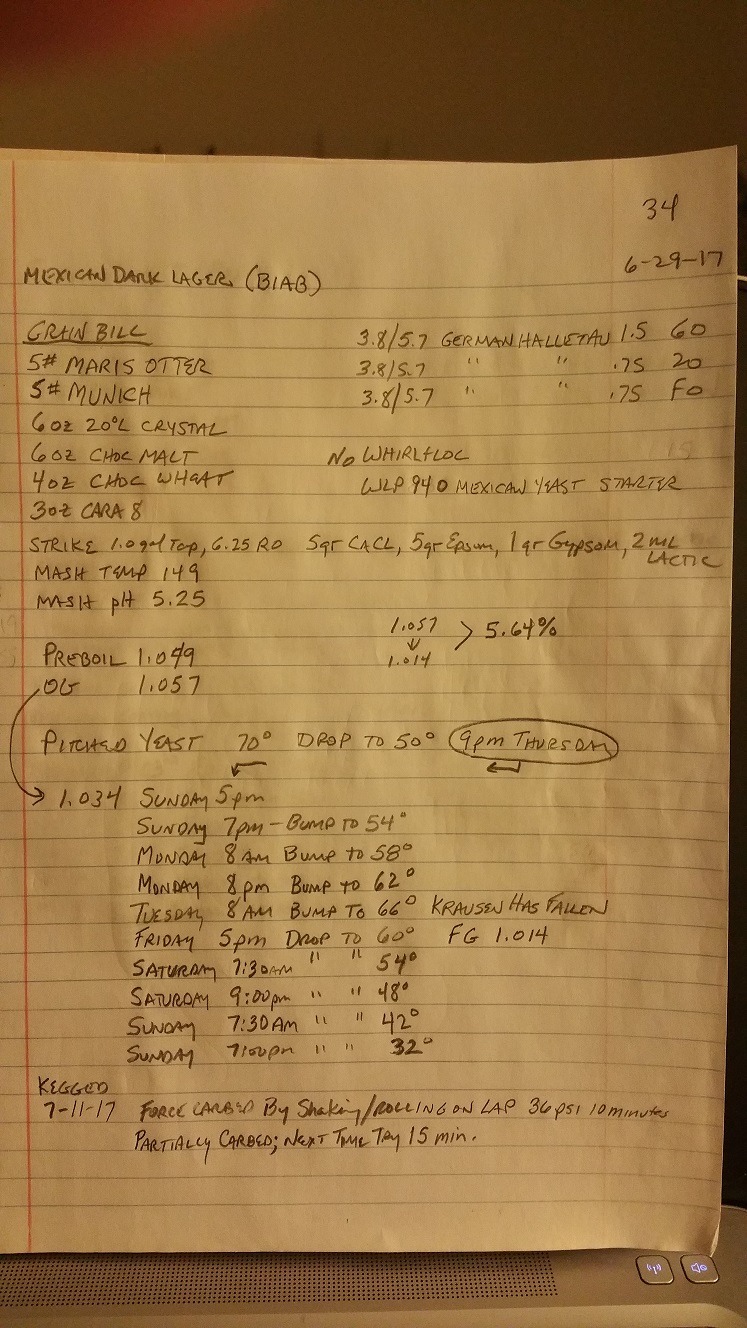 34
6-29-17
MEXICAN DARK LAGER (BIAB)
GRAIN BILL
5# MARIS OTTER
5# MUNICH
6oz 20°L CRYSTAL
6oz CHOC MALT
4oz CHOC WHEAT
3oz CARA 8
3.8/5.7 GERMAN HALLETAU 1.5 60
3.8/5.7 " " .75 20
3.8/5.7 " " .75 FO
No WHIRLFLOC
WLP 940 MEXICAN YEAST STARTER
STRIKE 1.0 gal Tap, 6.25 RO 5gr CACL, 5gr Epsom, 1gr Gypsom, 2 mL LACTIC
MASH TEMP 149
MASH pH 5.25
1.057
↓
1.014
> 5.64%
PREBOIL 1.049
OG 1.057
PITCHED YEAST 70° DROP TO 50° 9pm THURSDAY
1.034 SUNDAY 5pm
SUNDAY 7pm - BUMP TO 54°
MONDAY 8 AM BUMP to 58°
MONDAY 8pm BUMP to 62°
TUESDAY 8 AM BUMP TO 66° KRAUSEN HAS FALLEN
FRIDAY 5pm DROP TO 60° FG 1.014
SATURDAY 7:30AM " " 54°
SATURDAY 9:00pm " " 48°
SUNDAY 7:30AM " " 42°
SUNDAY 7:00pm " " 32°
KEGGED
7-11-17 FORCE CARBED By Shaking/ROLLING ON LAP 36 PSI 10 minutes
PARTIALLY CARBED; NEXT TIME TRY 15 min.